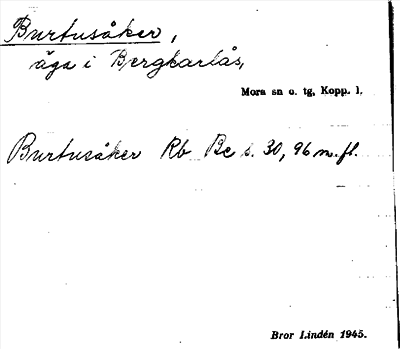 Burtusåker,
äga i Bergkarlås,
Mora sn o. tg, Kopp. l.
Burtusåker Rb Be s. 30, 96 m. fl.
Bror Lindén 1945.